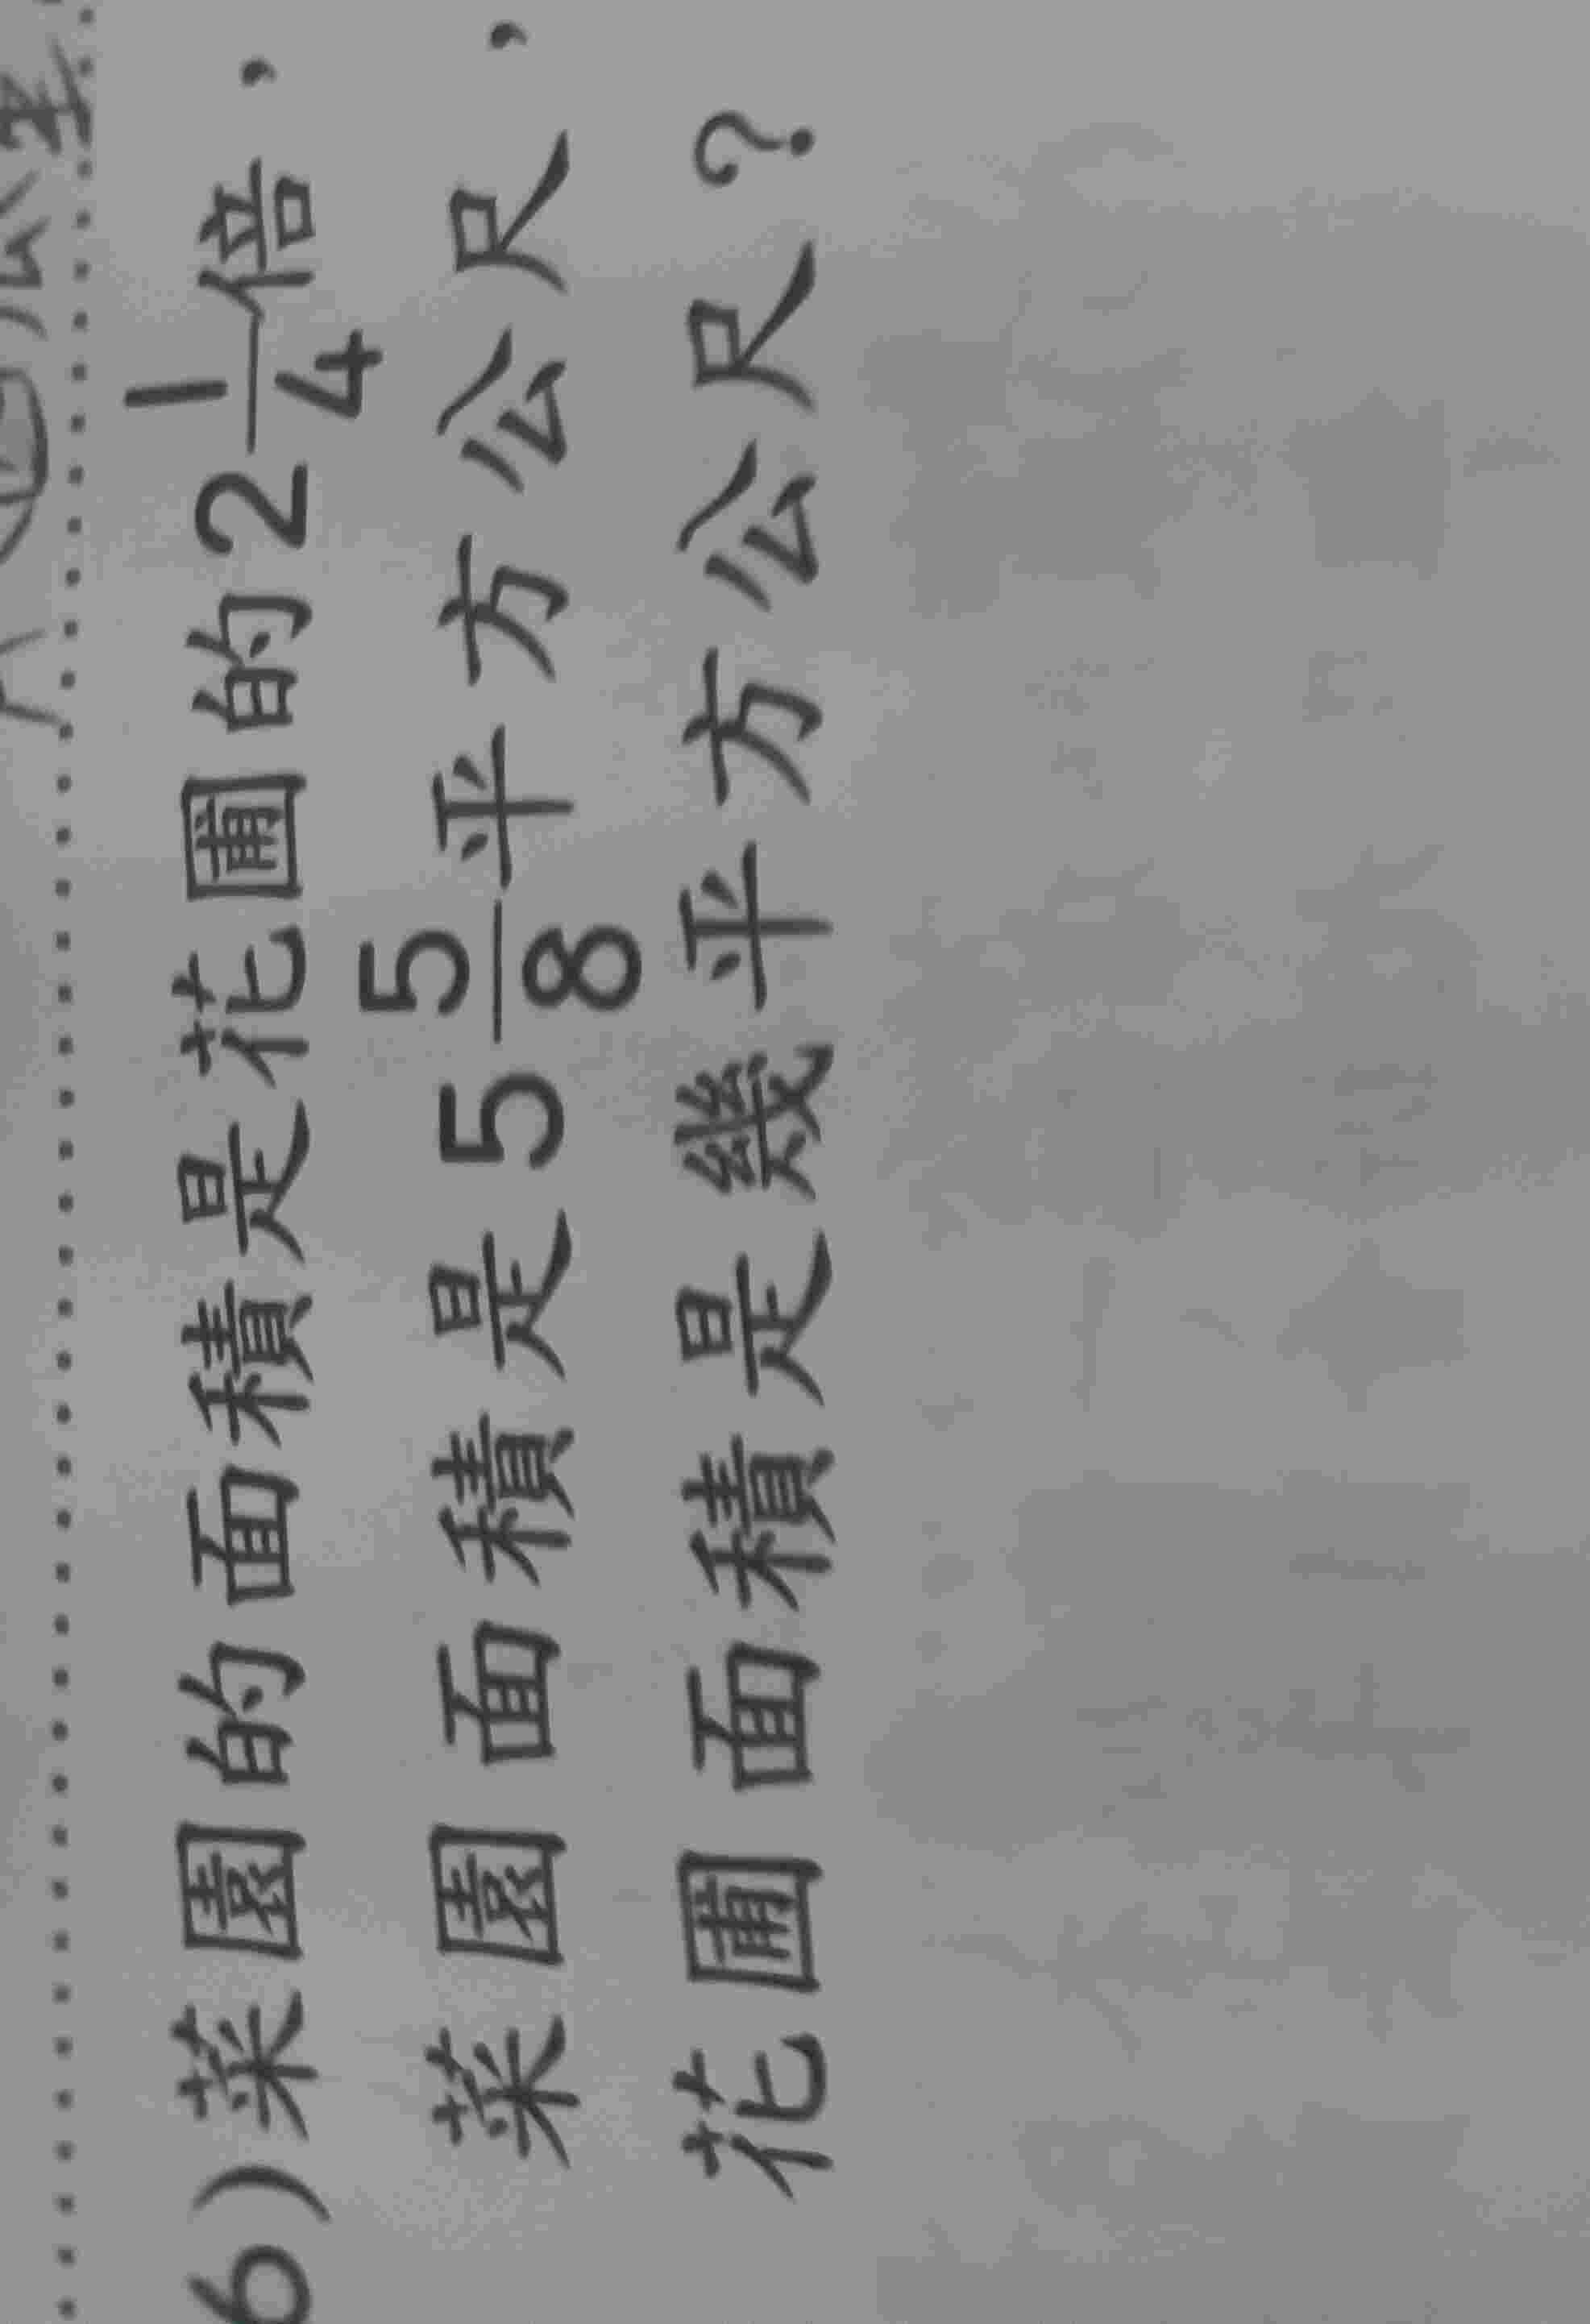 6)菜園的面積是花圃的2 1/4倍,
菜園面積是5 5/8平方公尺,
花圃面積是幾平方公尺?